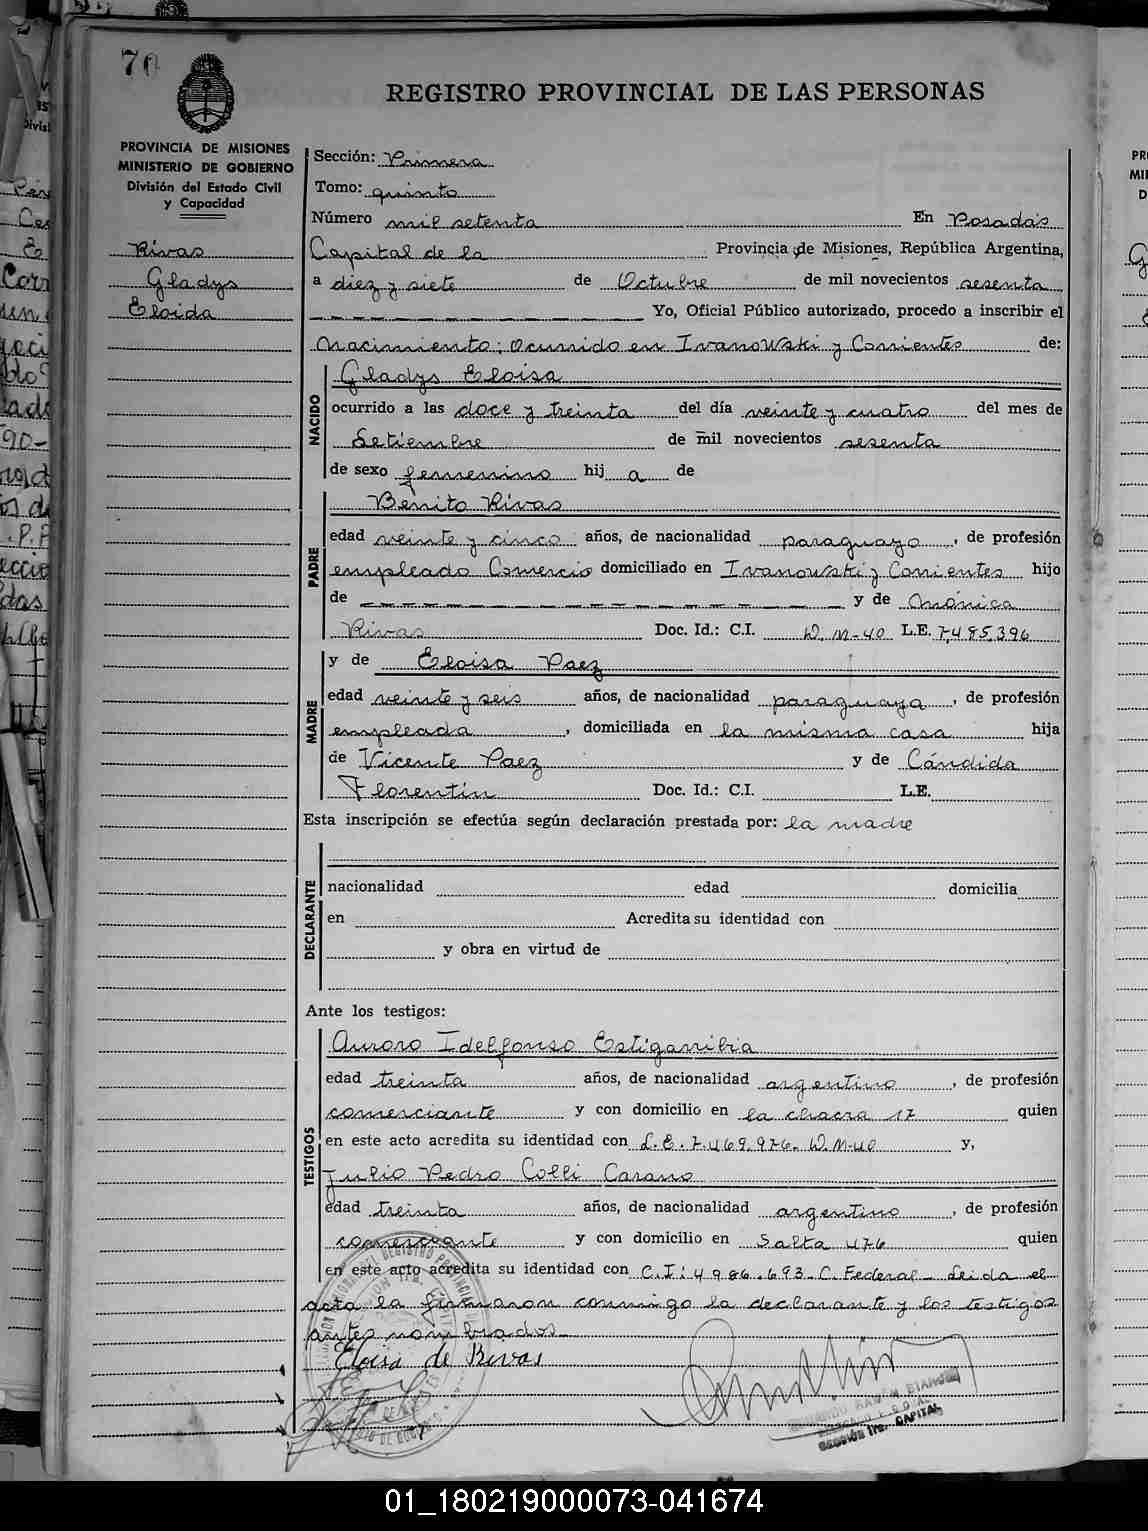 70
REGISTRO PROVINCIAL DE LAS PERSONAS
PROVINCIA DE MISIONES
MINISTERIO DE GOBIERNO
División del Estado Civil
y Capacidad
Rivas
Gladys
Eloida
Sección: Primera
Tomo: quinto
Número mil setenta En Posadas
Capital de la Provincia de Misiones, República Argentina,
a diez y siete de Octubre de mil novecientos sesenta
Yo, Oficial Público autorizado, procedo a inscribir el
Nacimiento; ocurrido en Ivanowski y Corrientes de:
NACIDO
Gladys Eloisa
ocurrido a las doce y treinta del día veinte y cuatro del mes de
Setiembre de mil novecientos sesenta
de sexo femenino hij a de
PADRE
Benito Rivas
edad veinte y cinco años, de nacionalidad paraguayo, de profesión
empleado Comercio domiciliado en Ivanowski y Corrientes hijo
de y de Mónica
Rivas Doc. Id.: C.I. D. M-40 L.E. 7,485,396
MADRE
y de Eloisa Paez
edad veinte y seis años, de nacionalidad paraguaya, de profesión
empleada, domiciliada en la misma casa hija
de Vicente Paez y de Cándida
Florentín Doc. Id.: C.I. L.E.
Esta inscripción se efectúa según declaración prestada por: la madre
DECLARANTE
nacionalidad edad domicilia
en Acredita su identidad con
y obra en virtud de
Ante los testigos:
TESTIGOS
Auroro Idelfonso Estigarribia
edad treinta años, de nacionalidad argentino, de profesión
comerciante y con domicilio en la chacra 17 quien
en este acto acredita su identidad con L.E. 7.469.976. D.M-40 y,
Julio Pedro Colli Carano
edad treinta años, de nacionalidad argentino, de profesión
comerciante y con domicilio en Salta 476 quien
en este acto acredita su identidad con C.I: 4986.693-C. Federal- Leida el
acta la firmaron conmigo la declarante y los testigos
antes nombrados-
Eloisa de Rivas
RAMÓN BIANCHI
SECCIÓN 1ra. CAPITAL
01_180219000073-041674